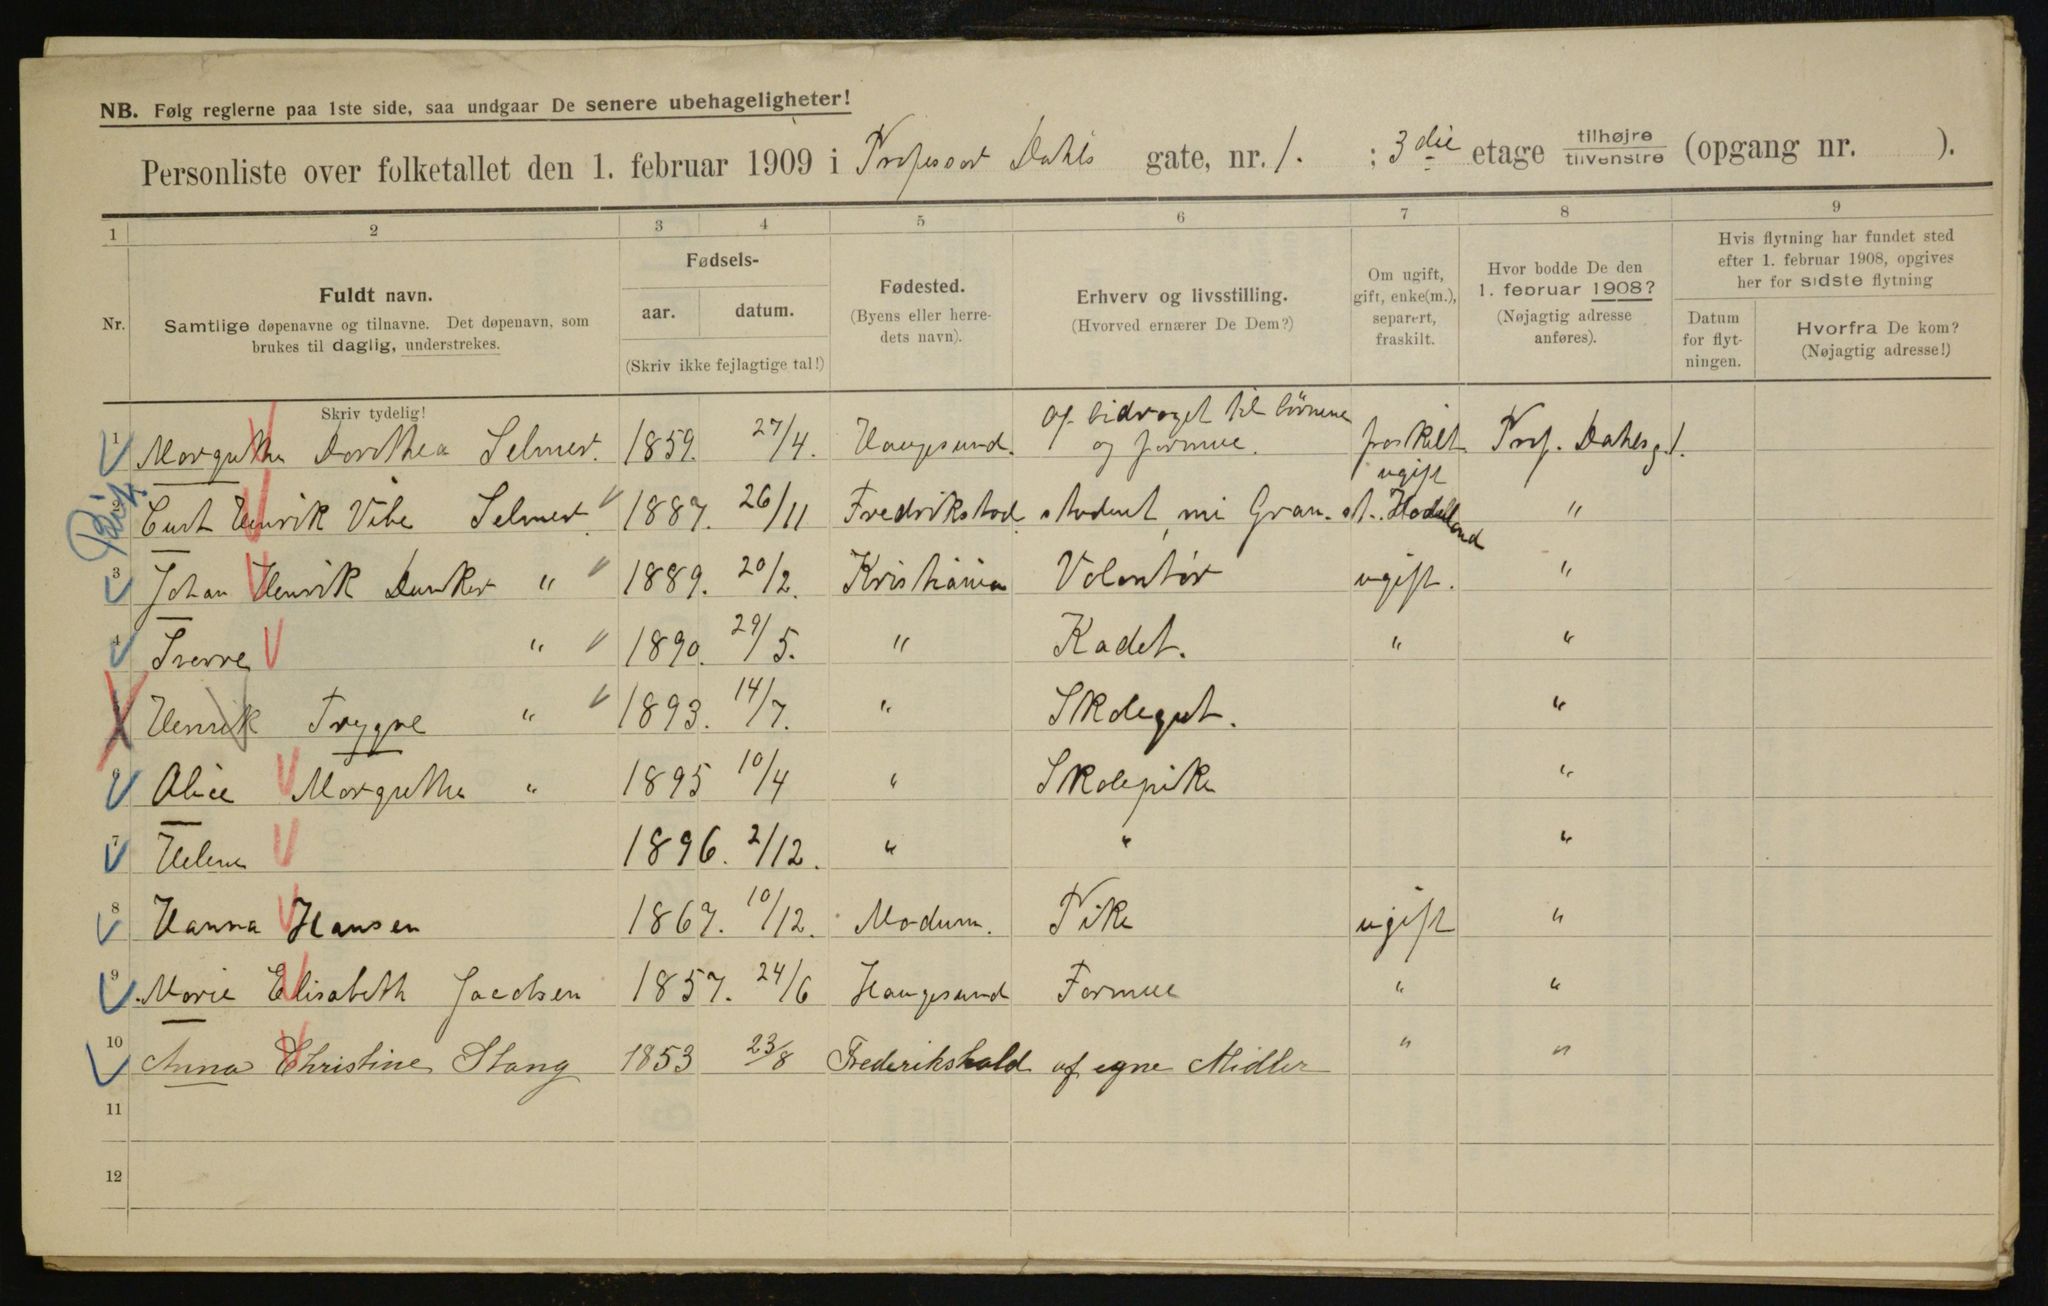 NB. Følg reglerne paa 1ste side, saa undgaar De senere ubehageligheter!
Personliste over folketallet den 1. februar 1909 i Professor Dahls gate, nr. 1. ; 3die etage tilhøjre tilvenstre (opgang nr. ).
1 2 3 4 5 6 7 8 9
Nr.
Fuldt navn.
Samtlige døpenavne og tilnavne. Det døpenavn, som
brukes til daglig, understrekes.
Skriv tydelig!
Fødsels-
aar. datum.
(Skriv ikke fejlagtige tal!)
Fødested.
(Byens eller herre-
dets navn).
Erhverv og livsstilling.
(Hvorved ernærer De Dem?)
Om ugift,
gift, enke(m.),
separert,
fraskilt.
Hvor bodde De den
1. februar 1908?
(Nøjagtig adresse
anføres).
Hvis flytning har fundet sted
efter 1. februar 1908, opgives
her for sidste flytning
Datum
for flyt-
ningen.
Hvorfra De kom?
(Nøjagtig adresse!)
1 Margrethe Dorothea Selmer. 1859. 27/4. Haugesund. Af bidraget til börnene og formue. fraskilt Prof. Dahlsg. 1.
2 Curt Henrik Vibe Selmer. 1887. 26/11 Fredrikstad student, ugift "
3 Johan Henrik Dunker " 1889. 20/2. Kristiania Volontør ugift. "
4 Sverre " 1890. 29/5. " Kadet. " "
Henrik Trygve " 1893. 14/7. " Skolegut. "
6 Alice Margrethe " 1895 10/4 " Skolepike "
7 Helene 1896. 2/12. " " "
8 Hanna Hansen 1867. 10/12. Modum. Pike ugift "
9 Marie Elisabeth Jacobsen 1857. 24/6 Haugesund Formue " "
10 Anna Christine Stang 1853 23/8 Frederikshald af egne Midler " "
11
12